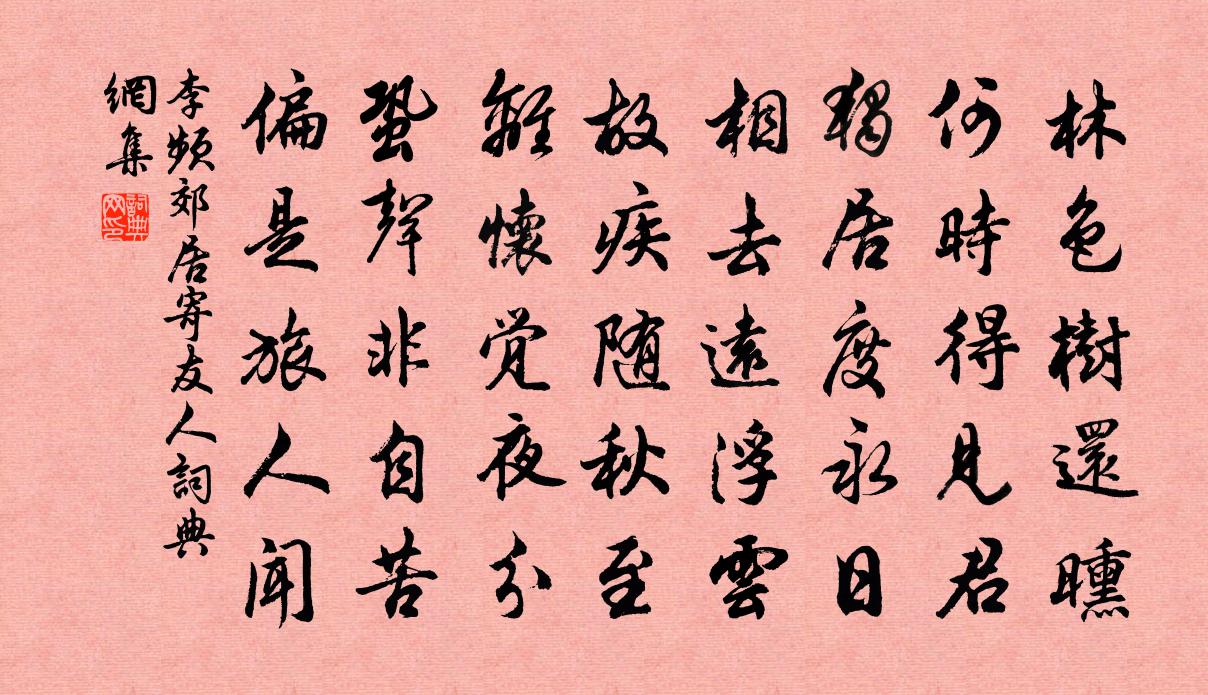 林色樹還曛
何時得見君
獨居度永日
相去遠浮雲
故疾随秋至
離懷覚夜分
蛩聲非自苦
偏是旅人聞
李頻郊居寄友人詞典
網集
詞典网印